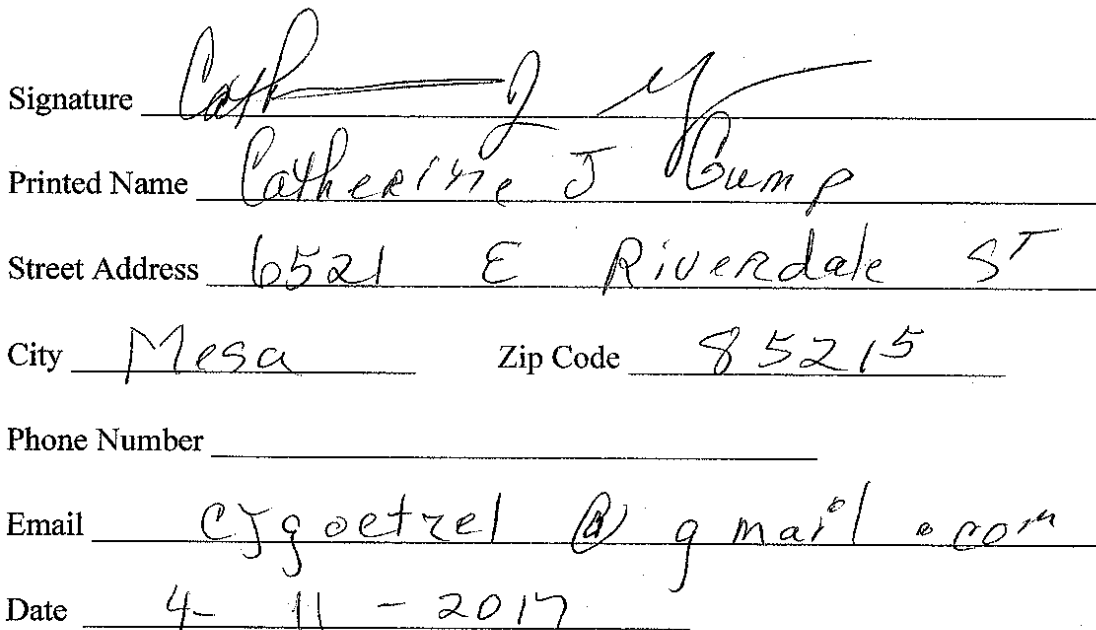 Signature Cath J
Printed Name Catherine J Gump
Street Address 6521 E Riverdale ST
City Mesa Zip Code 85215
Phone Number
Email CJgoetzel @ gmail .com
Date 4- 11 - 2017